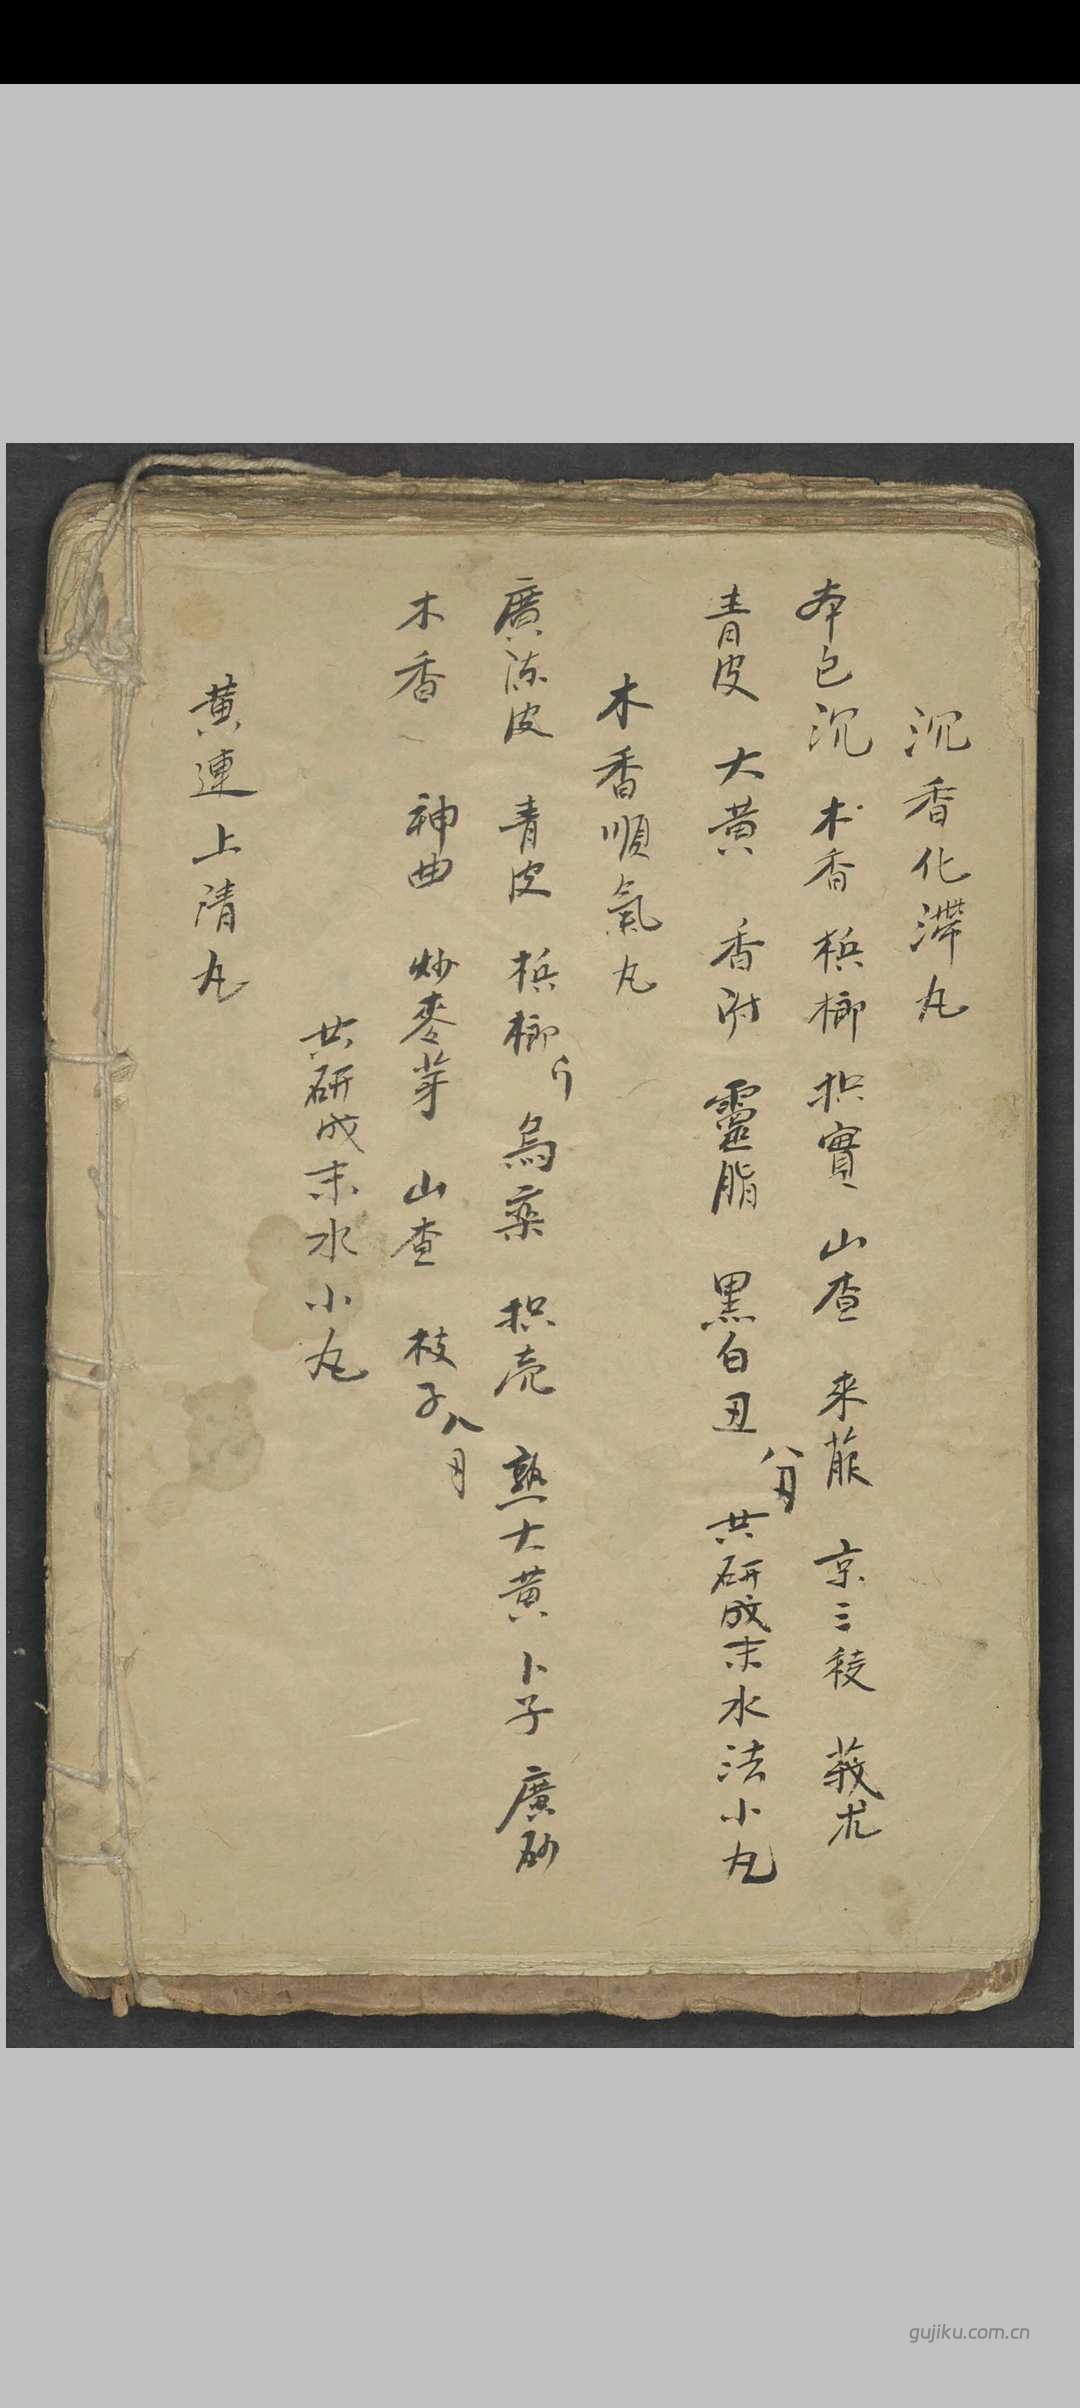 沉香化滯丸
本色沉 木香 梹榔 枳實 山查 来菔 京三稜 莪朮
青皮 大黄 香附 靈脂 黑白丑 共研成末水法小丸
木香順氣丸
廣陳皮 青皮 梹榔 烏藥 枳壳 熟大黄 卜子 廣砂
木香 神曲 炒麥芽 山查 枝子
共研成末水小丸
黄連上清丸
gujiku.com.cn